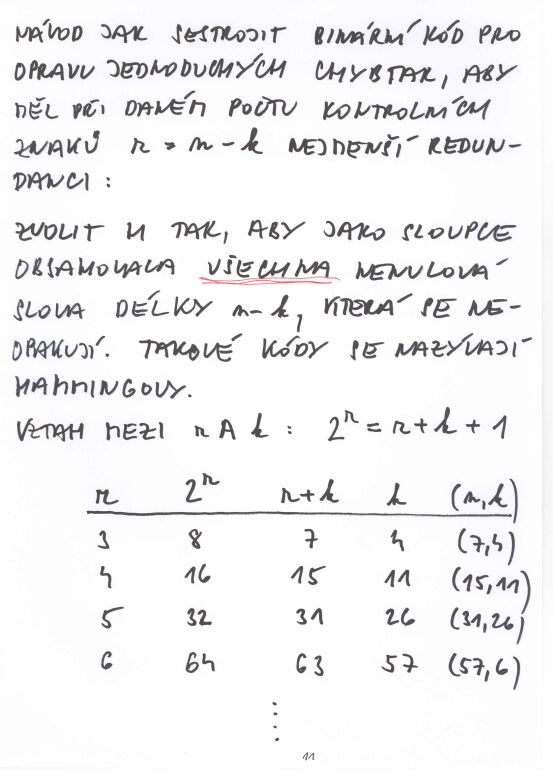 NÁVOD JAK SESTROJIT BINÁRNÍ KÓD PRO
OPRAVU JEDNODUCHÝCH CHYB TAK, ABY
MĚL PŘI DANÉM POČTU KONTROLNÍCH
ZNAKŮ r = n - k NEJMENŠÍ REDUN-
DANCI :
ZVOLIT H TAK, ABY JAKO SLOUPCE
OBSAHOVALA VŠECHNA NENULOVÁ
SLOVA DÉLKY n-k, KTERÁ SE NE-
OPAKUJÍ. TAKOVÉ KÓDY SE NAZÝVAJÍ
HAMMINGOVY.
VZTAH MEZI r A k : 2^r = r + k + 1
r 2^r r+k k (n,k)
3 8 7 4 (7,4)
4 16 15 11 (15,11)
5 32 31 26 (31,26)
6 64 63 57 (57,6)
11